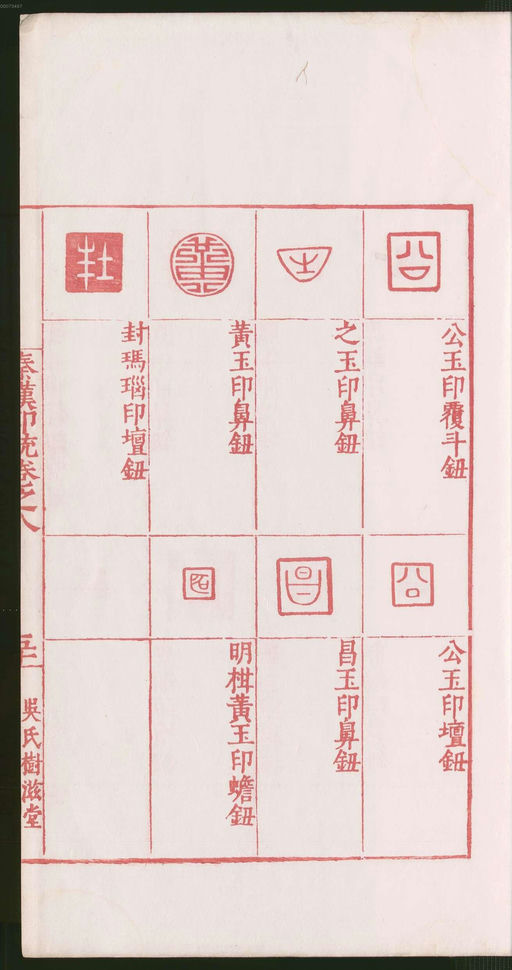 公玉印覆斗鈕
之玉印鼻鈕
黃玉印鼻鈕
封瑪瑙印壇鈕
公玉印壇鈕
昌玉印鼻鈕
明柑黃玉印蟾鈕
秦漢印統卷之八
吳氏樹滋堂
00073497